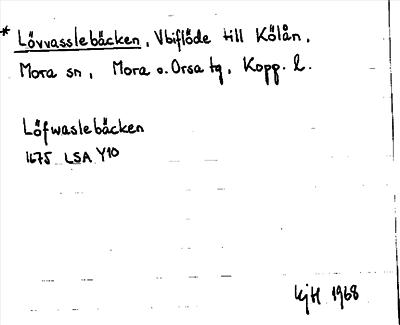 * Lövvasslebäcken, Vbiflöde till Kölån,
Mora sn, Mora o. Orsa tg, Kopp. l.
Löfwaslebäcken
1675 LSA Y10
KjH 1968